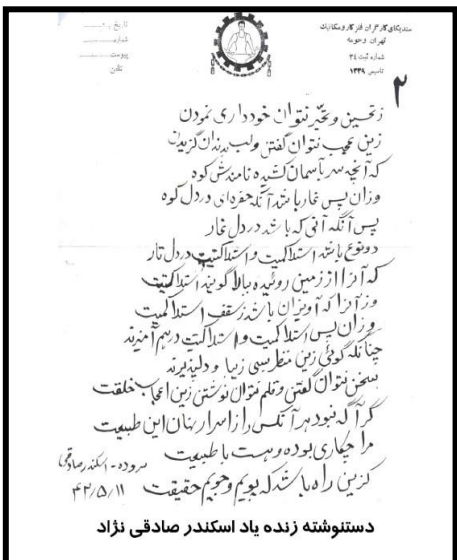 سندیکای کارگران فلزکار و مکانیک
تهران و حومه
شماره ثبت ۳۴
تاسیس ۱۳۳۹
تاریخ
شماره
پیوست
تلفن
۲
ز تحسین و تحیر نتوان خود داری نمودن
زین عجب نتوان گفتن و لب بدندان گزیدن
که آنچه سر بآسمان کشیده نامندش کوه
وزان پس غار باشد آنکه حفره‌ای در دل کوه
پس آنگه آنی که باشد در دل غار
دو نوع باشد استلاکمیت و استلاکتیت در دل تار
که آنرا از زمین روئیده ببالا گویند استلاکتیت
وز آنرا که آویزان باشد ز سقف استلاکمیت
وزان پس استلاکمیت و استلاکتیت در هم آمیزند
چنانکه گوئی زین منظر بسی زیبا و دلپذیرند
سخن نتوان گفتن و قلم نتوان نوشتن زین اعجاب خلقت
گر آگه نبود هر آنکس را ز اسرار نهان این طبیعت
مرا چکاری بوده و هست با طبیعت
کزین راه باشد که پویم و جویم حقیقت
سروده - اسکندر صادقی
۴۲/۵/۱۱
دستنوشته زنده یاد اسکندر صادقی نژاد